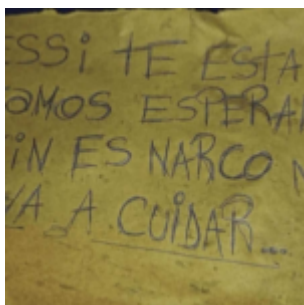 ESSi TE ESTA
AMOS ESPERA
iN ES NARCO N
VA A CUiDAR...